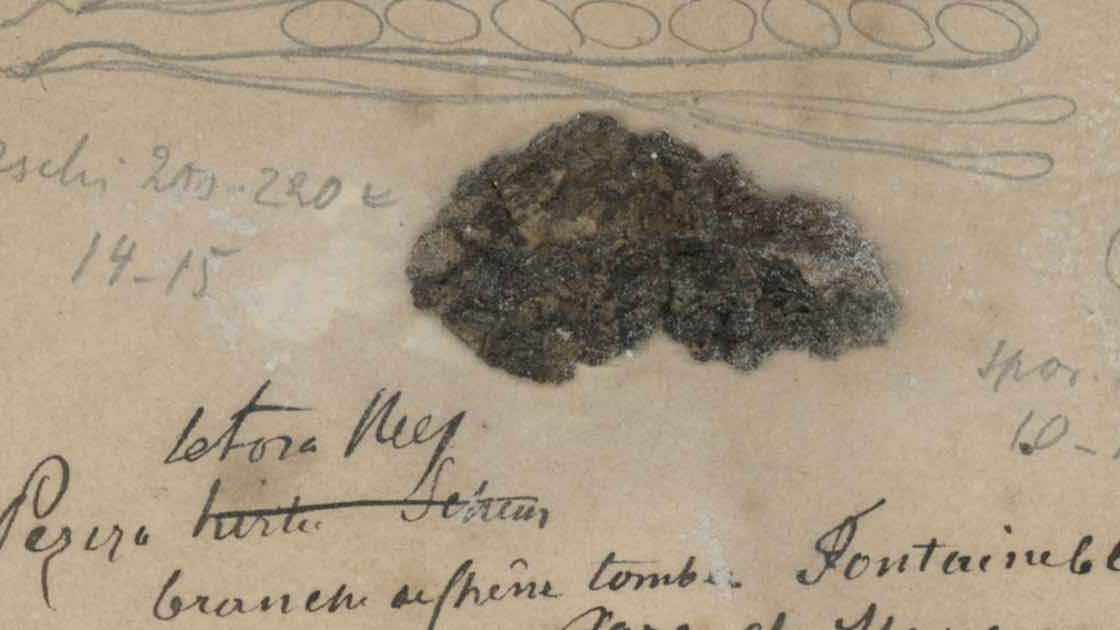 aschi 200-220
14-15
spor.
10-
setosa Nees
Peziza hirta Schum
branche de chêne tombé. Fontainebl